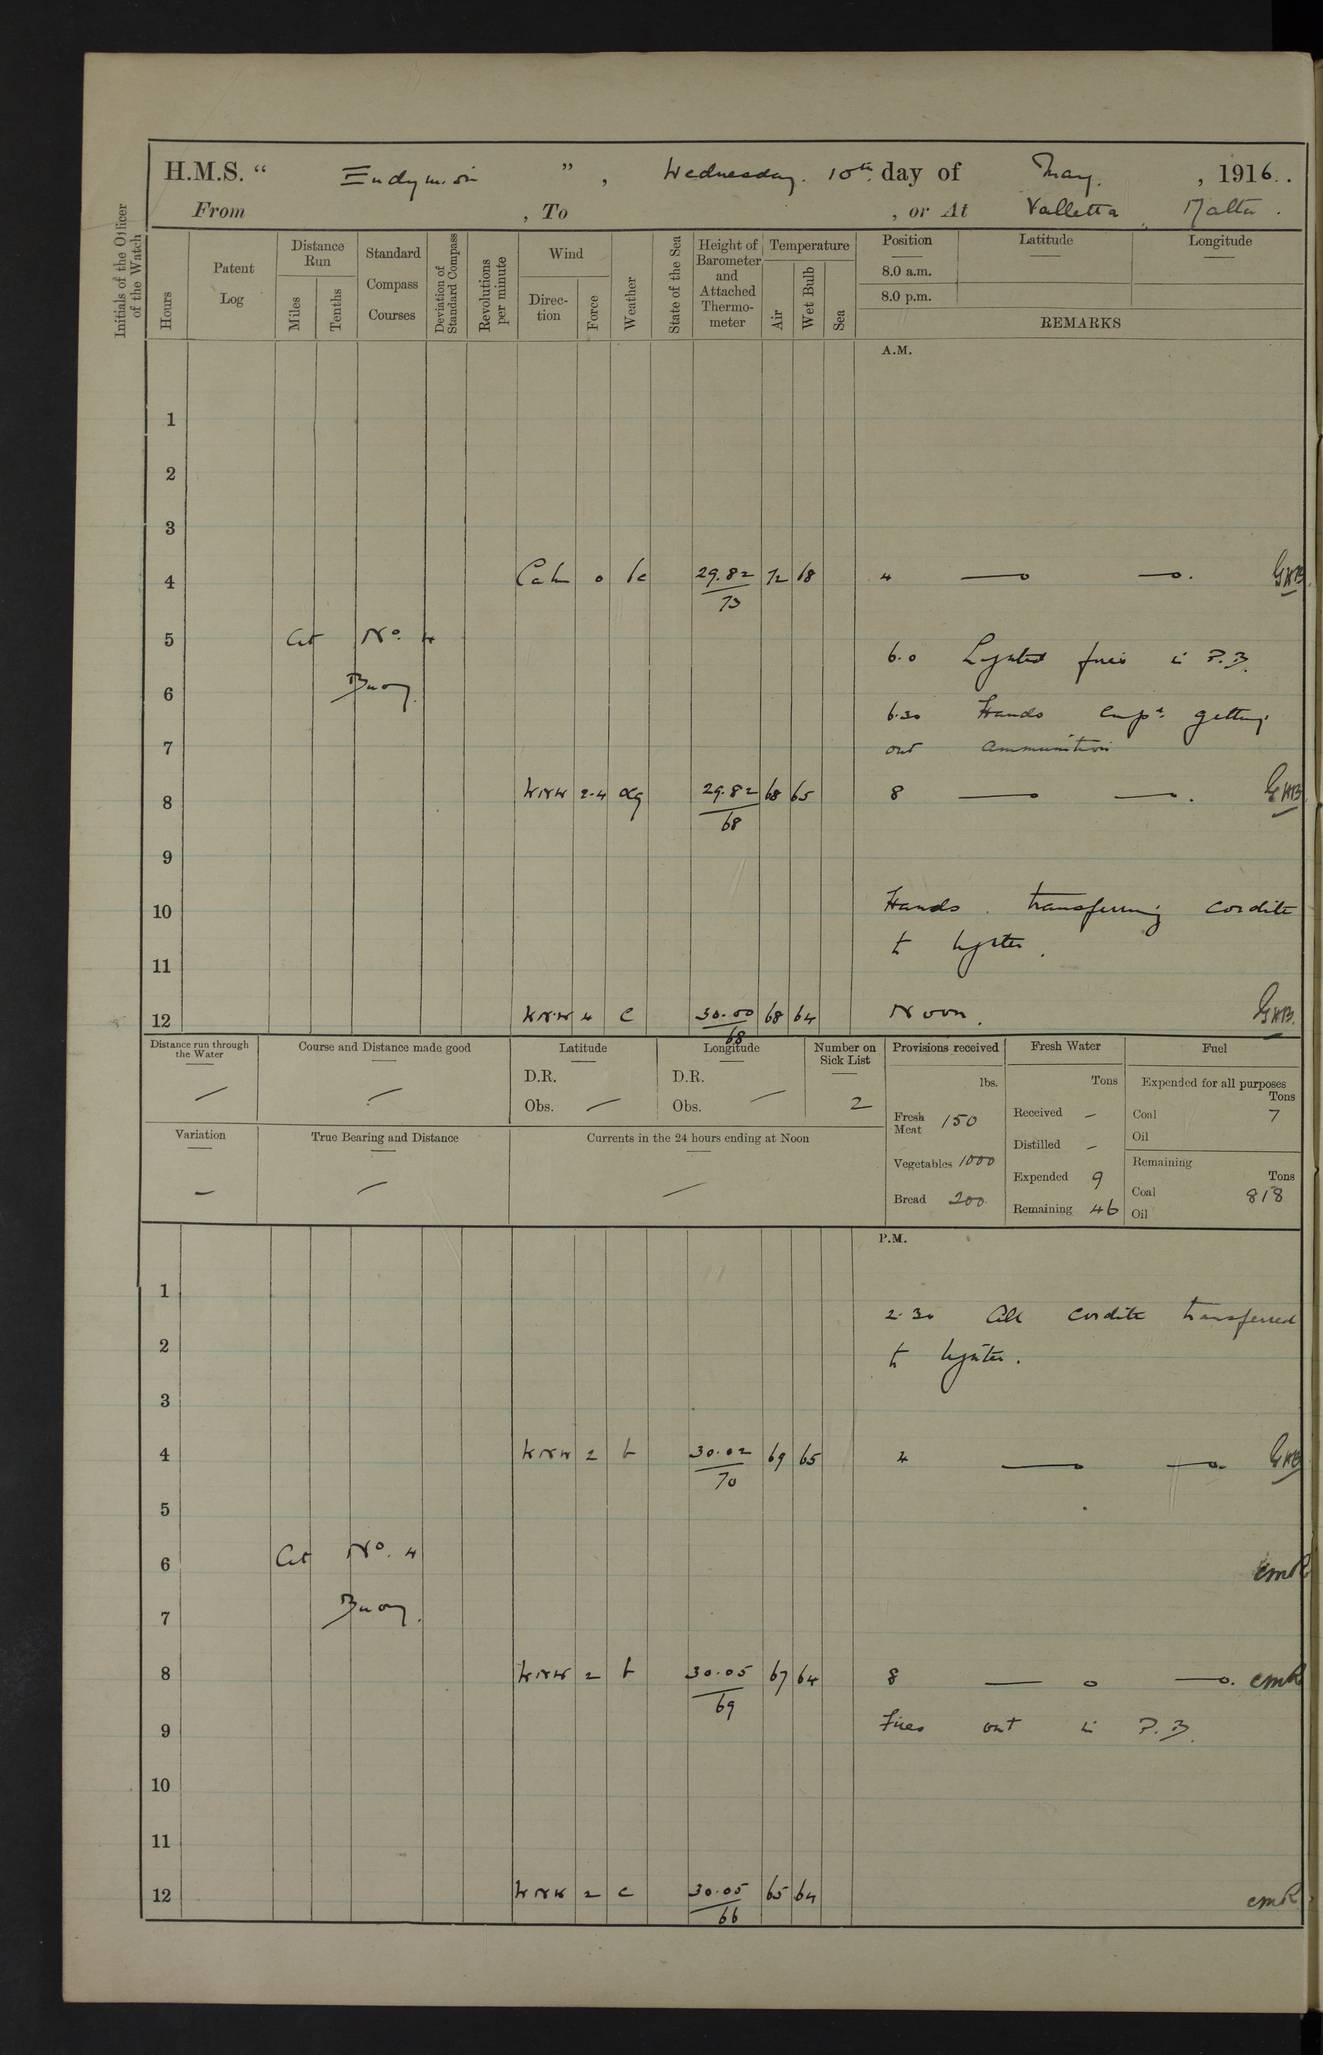 H.M.S. " Endymion ", Wednesday. 10th day of May. , 1916..
From , To , or At Valletta, Malta.
Initials of the Officer of the Watch
Hours
Patent Log
Distance Run
Miles
Tenths
Standard Compass Courses
Deviation of Standard Compass
Revolutions per minute
Wind
Direction
Force
Weather
State of the Sea
Height of Barometer and Attached Thermometer
Temperature
Air
Wet Bulb
Sea
Position
Latitude
Longitude
8.0 a.m.
8.0 p.m.
REMARKS
A.M.
1
2
3
4 Calm 0 bc 29.82/73 72 68 4 —o —o. GHB.
5 At No. 4
6.0 Lighted fires in P.B.
6 Buoy.
6.30 Hands empd. getting
7 out ammunition
8 WNW 2-4 29.82/68 68 65 8 —o —o. GHB
9
10 Hands transferring cordite
to lighter.
11
12 WNW 4 c 30.00/68 68 64 Noon. GHB.
Distance run through the Water
—
Course and Distance made good
—
Latitude
D.R.
Obs. —
Longitude
D.R.
Obs. —
Number on Sick List
2
Provisions received
lbs.
Fresh Meat 150
Vegetables 1000
Bread 200
Fresh Water
Tons
Received –
Distilled –
Expended 9
Remaining 46
Fuel
Expended for all purposes
Tons
Coal 7
Oil
Remaining
Tons
Coal 818
Oil
Variation
—
True Bearing and Distance
—
Currents in the 24 hours ending at Noon
—
P.M.
1
2.30 All cordite transferred
2 to lighter.
3
4 WNW 2 b 30.02/70 69 65 4 —o —o. GHB
5
6 At No. 4 CMR
7 Buoy.
8 WNW 2 b 30.05/69 67 64 8 — o —o. CMR
9 Fires out in P.B.
10
11
12 WNW 2 c 30.05/66 65 64 CMR